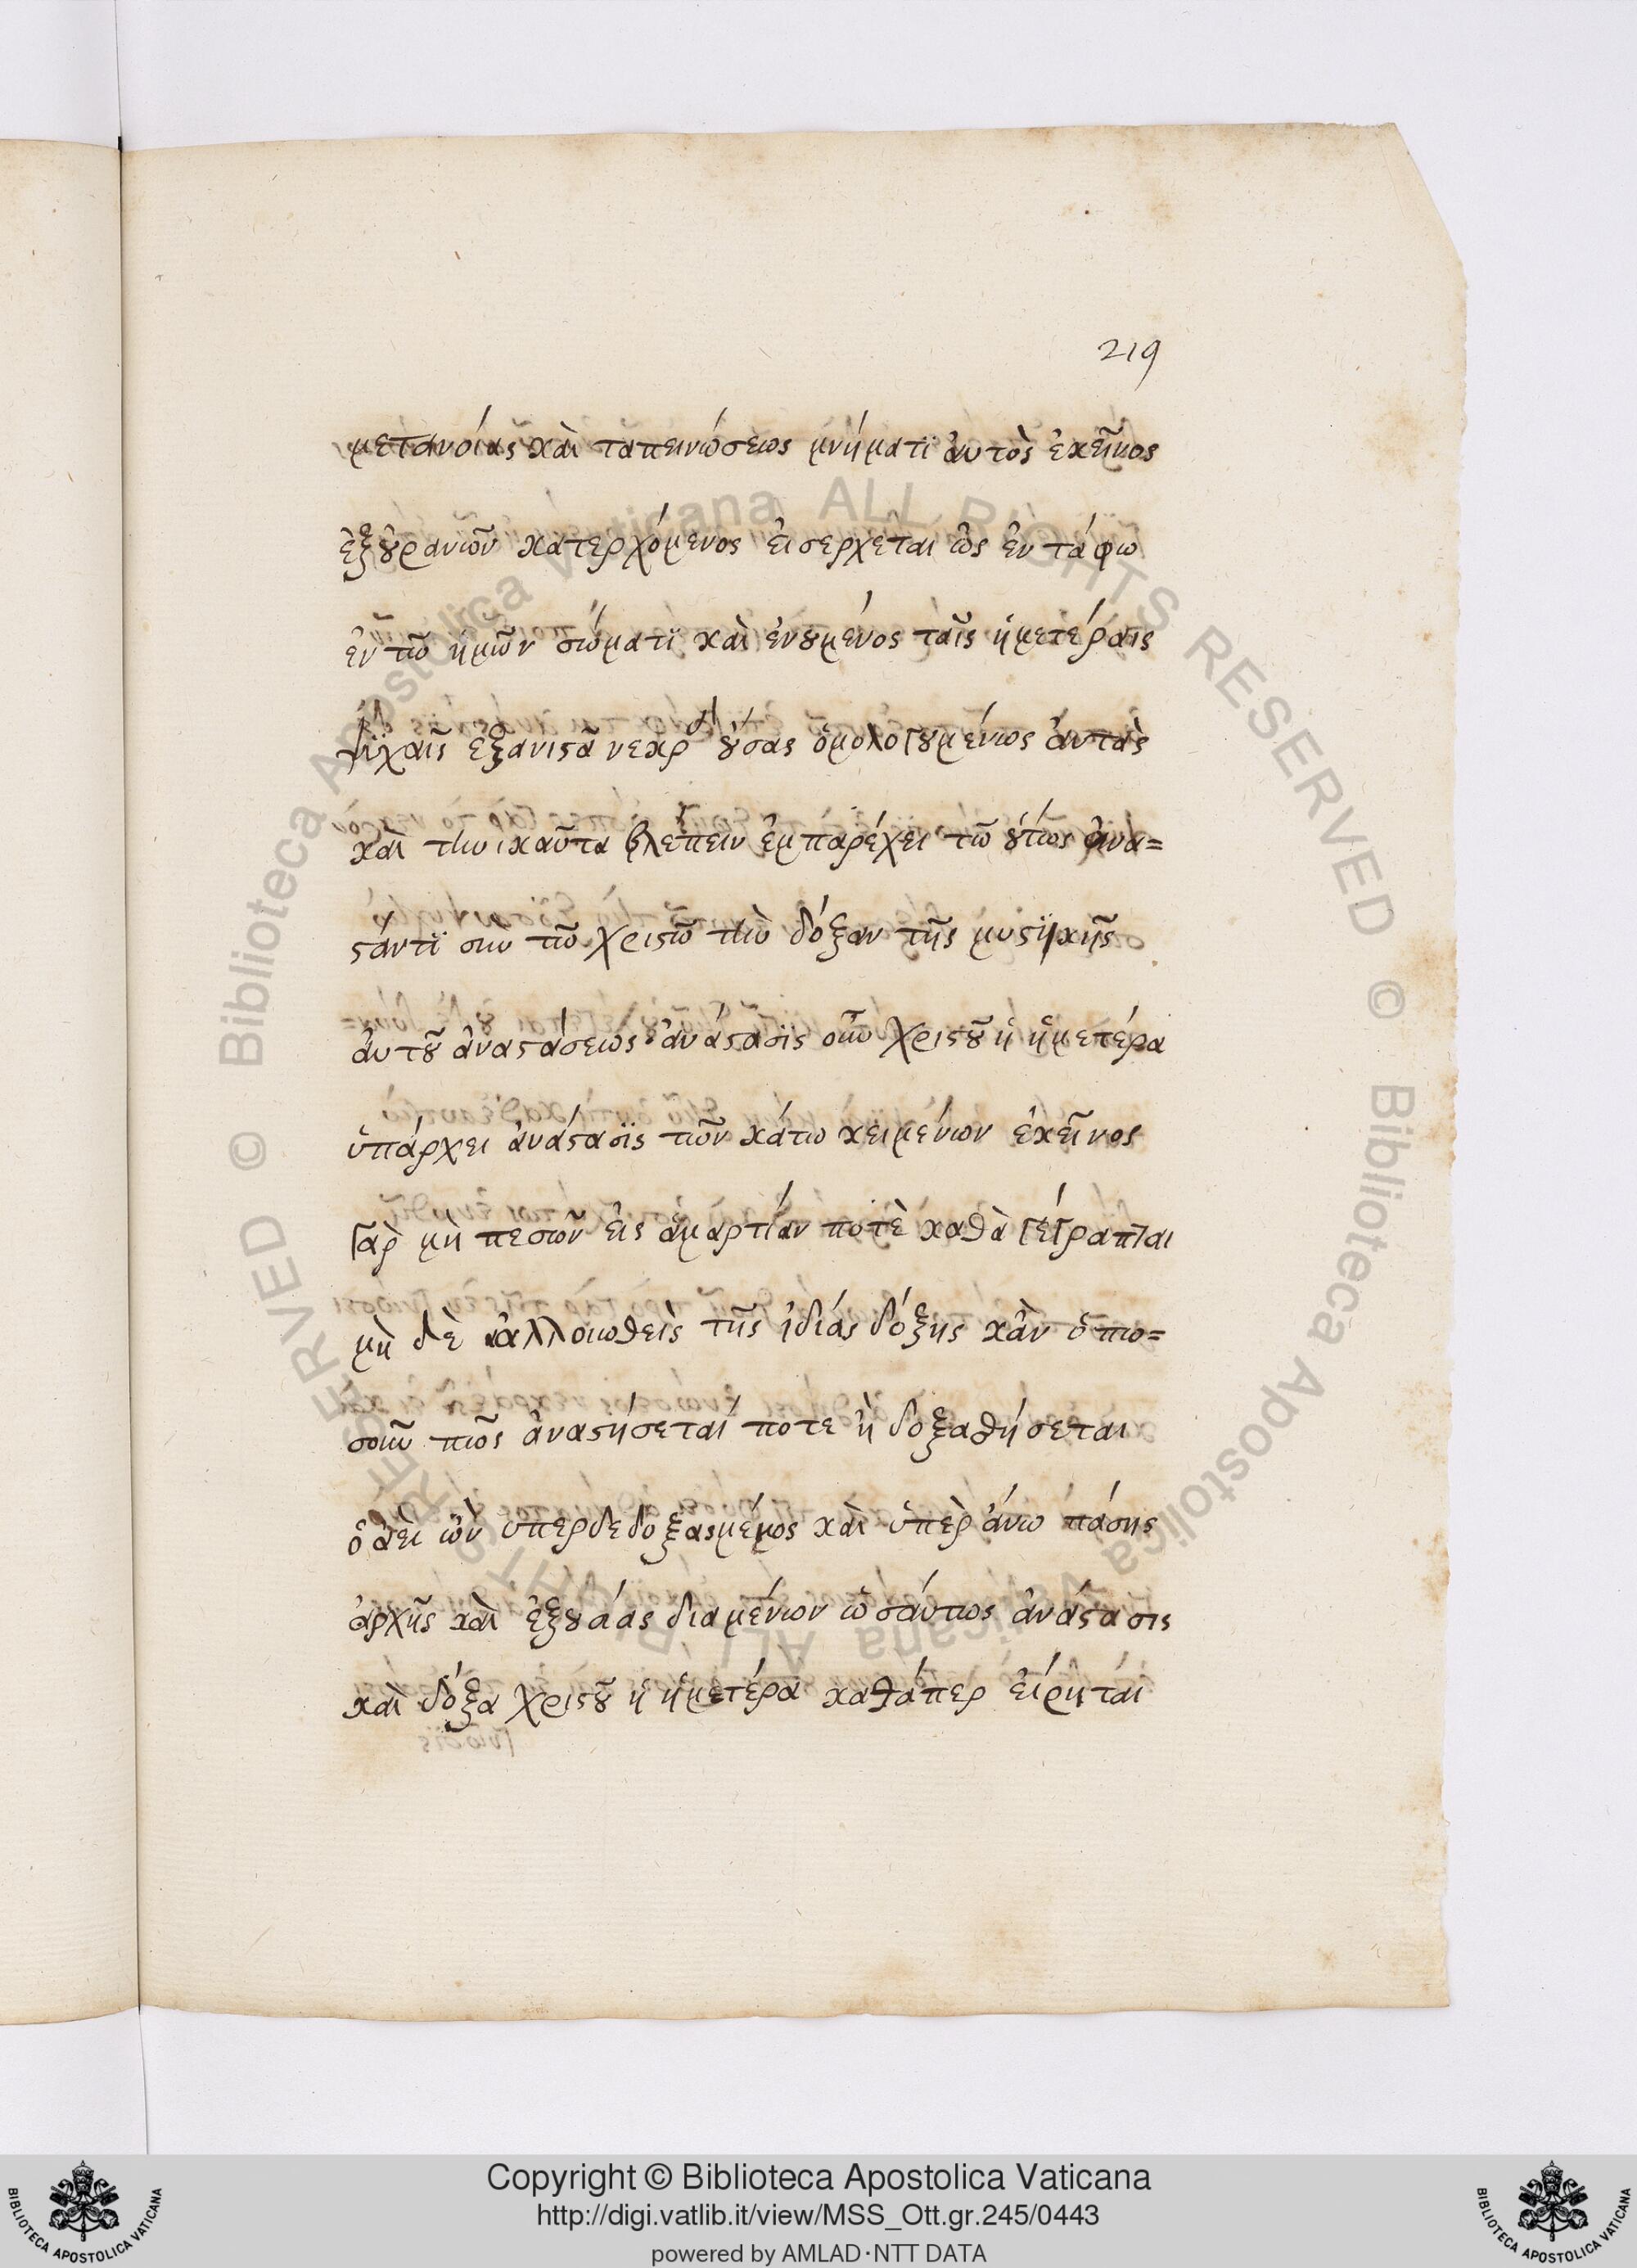 219
μετανοίας καὶ ταπεινώσεως μνήματϊ ἀυτὸς ἐκεῖνος
ἐξ οὐρανῶν κατερχόμενος ἐισερχεται ὡς ἐν τάφω
ἐν τῶ ἡμῶν σώματϊ καὶ ἑνουμένος ταῖς ἡμετέραις
ψϊχαῖς εξανιστᾶ νεκρὰ οὔσας ὁμολογουμένως ἀυτὰς
καὶ τὴνικαῦτα βλεπειν ἐμπαρέχει τῶ οὕτως ἀνα=
στάντϊ σὺν τῶ Χριστῶ τὴν δόξαν τῆς μυστϊκῆς
ἀυτοῦ ἀναστάσεως ἀνάστασϊς οὖν Χριστοῦ ἡ ἡμετέρα
ὑπάρχει ἀνάστασϊς τῶν κάτω κειμένων ἐκεῖνος
γαρ μὴ πεσων εἰς ἁμαρτίαν ποτὲ καθὰ γέγραπται
μὴ δὲ ἀλλοιωθεὶς τῆς ἰδιάς δόξης κἂν ὁπω=
σοῦν πῶς ἀναστήσεται ποτε ἢ δοξασθήσεται
ὁ ἀεὶ ὢν υπερδεδοξασμέμος καὶ ὑπὲρ άνω πάσης
ἀρχῆς καὶ ἐξουσίας διαμένων ὡσάυτως ἀνάστασις
καὶ δόξα Χριστοῦ ἡ ἡμετέρα καθάπερ ἐίρηται
Copyright © Biblioteca Apostolica Vaticana
http://digi.vatlib.it/view/MSS_Ott.gr.245/0443
powered by AMLAD·NTT DATA
BIBLIOTECA APOSTOLICA VATICANA
BIBLIOTECA APOSTOLICA VATICANA
© Biblioteca Apostolica Vaticana ALL RIGHTS RESERVED
© Biblioteca Apostolica Vaticana ALL RIGHTS RESERVED